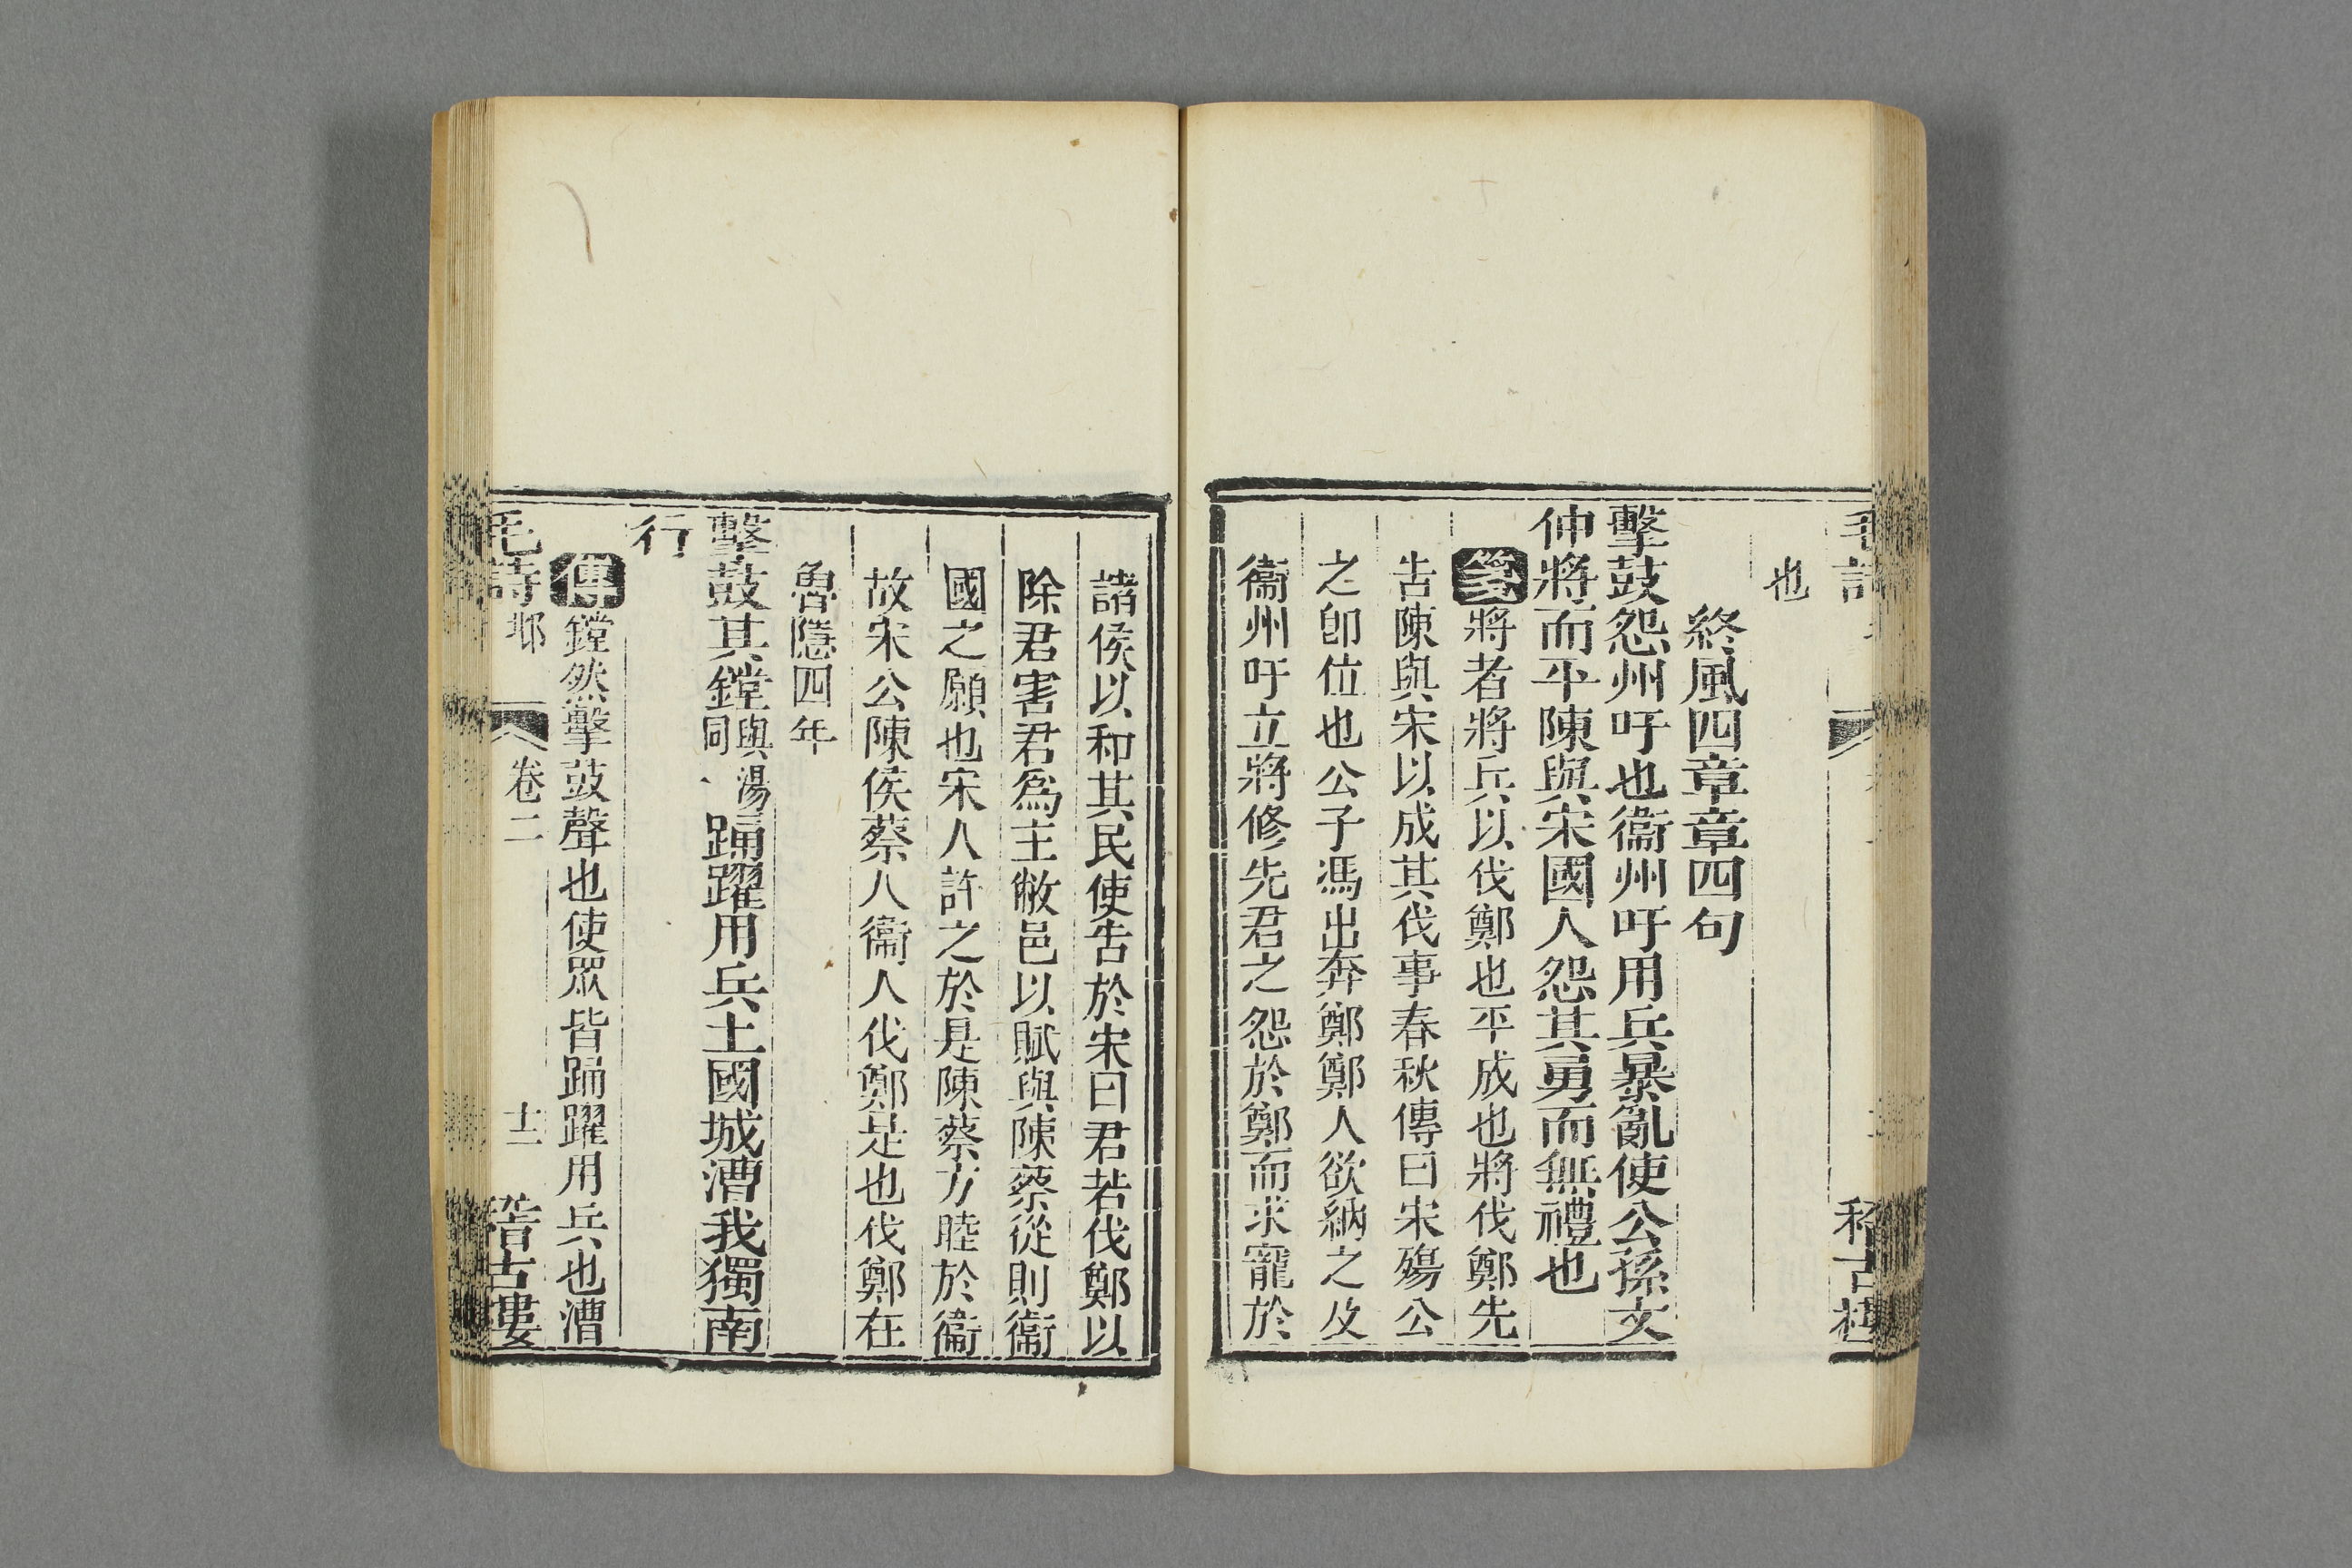 也
終風四章章四句
擊鼓怨州吁也衞州吁用兵暴亂使公孫文
仲將而平陳與宋國人怨其勇而無禮也
箋將者將兵以伐鄭也平成也將伐鄭先
告陳與宋以成其伐事春秋傳曰宋殤公
之卽位也公子馮出奔鄭鄭人欲納之及
衞州吁立將修先君之怨於鄭而求寵於
諸侯以和其民使告於宋曰君若伐鄭以
除君害君爲主敝邑以賦與陳蔡從則衞
國之願也宋人許之於是陳蔡方睦於衞
故宋公陳侯蔡人衞人伐鄭是也伐鄭在
魯隱四年
擊鼓其鏜與湯同踊躍用兵土國城漕我獨南
行
傳鏜然擊鼓聲也使眾皆踊躍用兵也漕
毛詩 邶 卷二 十二 稽古樓